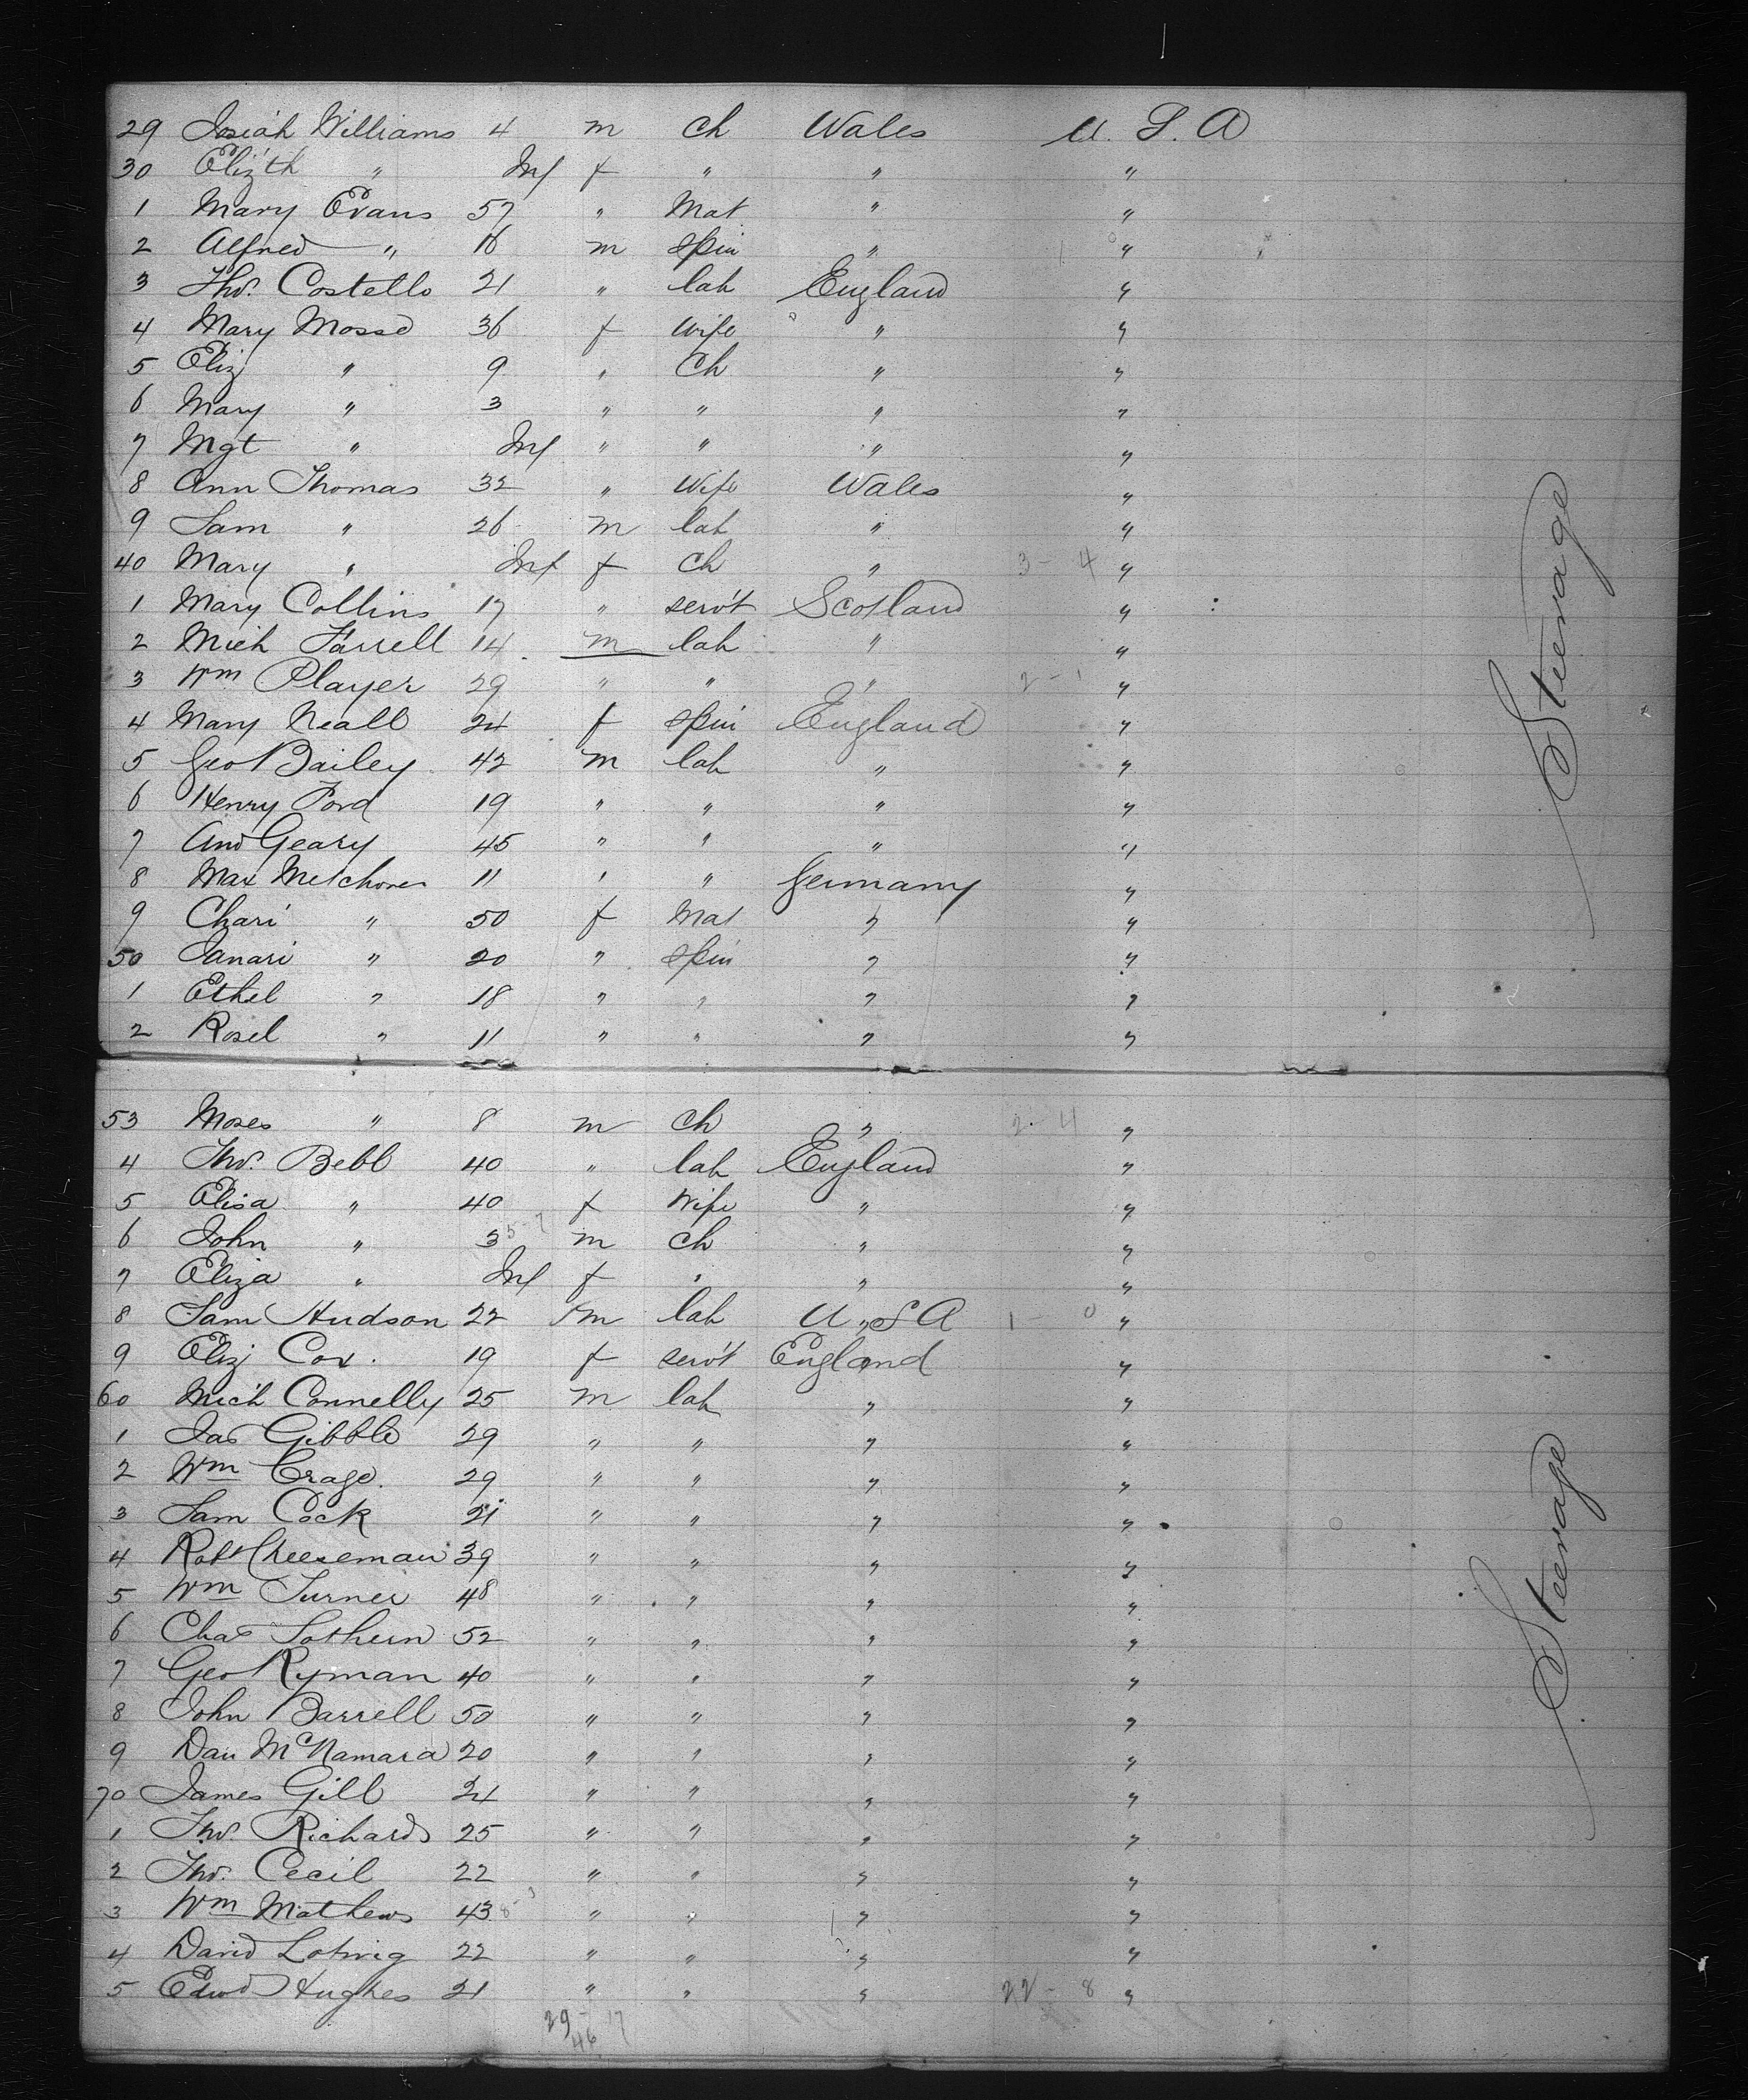 29 Josiah Williams 4 m ch Wales U. S. A
30 Eliz'th " Inf f " " "
1 Mary Evans 57 " Mat " "
2 Alfred " 16 m spin " "
3 Tho's. Costello 21 " lab England "
4 Mary Mossd 36 f wife " "
5 Eliz " 9 " ch " "
6 Mary " 3 " " " "
7 Mgt " Inf " " " "
8 Ann Thomas 32 " Wife Wales "
9 Sam " 26 m lab " "
40 Mary " Inf f ch " 3 - 4 "
1 Mary Collins 17 " serv't Scotland "
2 Mich Farrell 14 m lab " "
3 Wm Player 29 " " " 2 - 1 "
4 Mary Neall 24 f spin England "
5 Geo Bailey 42 m lab " "
6 Henry Ford 19 " " " "
7 And Geary 45 " " " "
8 Max 11 " " Germany "
9 Chari " 50 f Mat " "
50 Janari " 20 " spin " "
1 Ethel " 18 " " " "
2 Rosel " 11 " " " "
53 Moses " 8 m ch " 2 - 4 "
4 Tho's. Bebb 40 " lab England "
5 Elisa " 40 f Wife " "
6 John " 3 5-7 m ch " "
7 Eliza " Inf f " " "
8 Sam Hudson 22 m lab U.S A 1 - 0 "
9 Eliz Cox. 19 f serv't England "
60 Mich Connelly 25 m lab " "
1 Jas Gibble 29 " " " "
2 Wm Crage. 29 " " " "
3 Sam Cock 21 " " " "
4 Robt Cheeseman 39 " " " "
5 Wm Turner 48 " " " "
6 Chas Sothern 52 " " " "
7 Geo Ryman 40 " " " "
8 John Barrell 50 " " " "
9 Dan McNamara 20 " " " "
70 James Gill 24 " " " "
1 Tho's. Richards 25 " " " "
2 Tho's. Cecil 22 " " " "
3 Wm Mathews 43 8-3 " " " "
4 David Lotwig 22 " " " "
5 Edwd Hughes 21 " " " 22 - 8 "
29 - 17
46
Steerage
Steerage